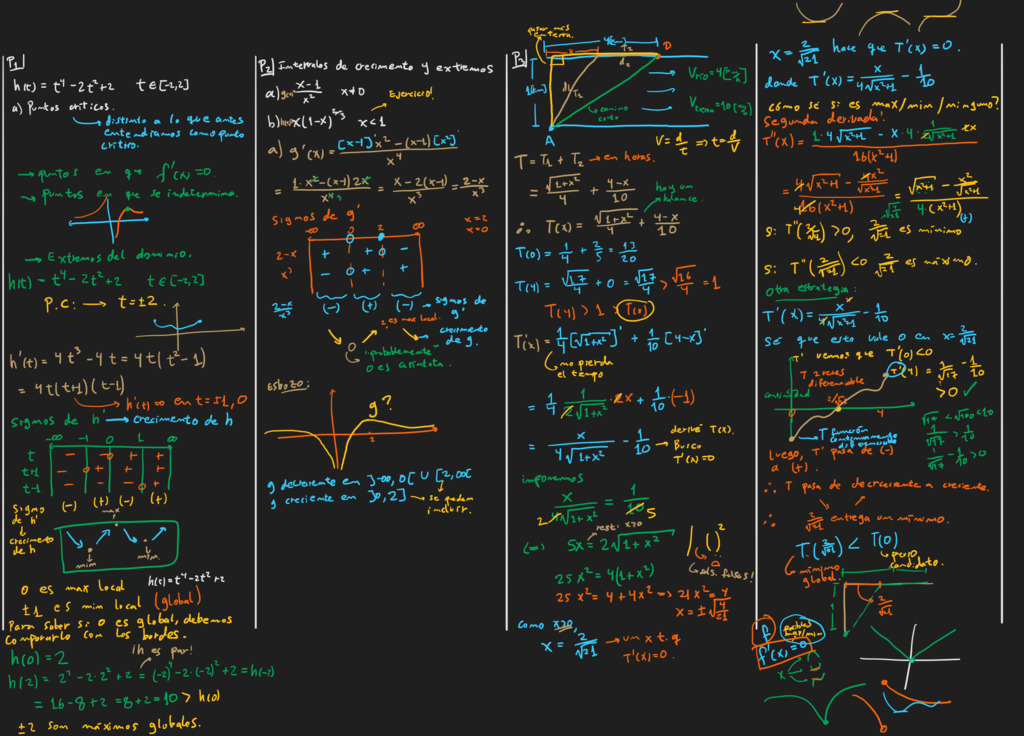 P1
h(t) = t⁴ - 2t² + 2   t ∈ [-2,2]
a) Puntos críticos.
distinto a lo que antes
entendíamos como punto
crítico.
→ puntos en que f'(x) = 0.
→ puntos en que se indetermina.
→ Extremos del dominio.
h(t) = t⁴ - 2t² + 2   t ∈ [-2,2]
P.C: → t = ±2.
h'(t) = 4t³ - 4t = 4t(t² - 1)
= 4t(t+1)(t-1)
→ h'(t) = 0 en t = ±1, 0
signos de h' → crecimiento de h
-∞ -1 0 1 ∞
t - - + +
t+1 - + + +
t-1 - - - +
(-) (+) (-) (+)
signo
de h'
crecimiento
de h
max
min min
0 es max local   h(t) = t⁴ - 2t² + 2
±1 es min local (global)
Para saber si 0 es global, debemos
compararlo con los bordes.
h(0) = 2   ¡h es par!
h(2) = 2⁴ - 2·2² + 2 = (-2)⁴ - 2·(-2)² + 2 = h(-2)
= 16 - 8 + 2 = 8 + 2 = 10 > h(0)
±2 son máximos globales.
P2 Intervalos de crecimiento y extremos
a) g(x)= x-1/x²   x ≠ 0
Ejercicio!
b) h(x)= x(1-x)^2/3   x < 1
a) g'(x) = [x-1]' x² - (x-1)[x²]' / x⁴
= 1·x² - (x-1)2x / x⁴ = x - 2(x-1) / x³ = 2-x / x³
signos de g'   x=2
x=0
-∞ 0 2 ∞
2-x + + -
x³ - + +
2-x/x³ (-) (+) (-) → signos de
g'
2 es max local.
crecimiento
de g.
0
"probablemente"
0 es asíntota.
Esbozo:
g?
2
g decreciente en ]-∞, 0[ ∪ [2, ∞[
g creciente en ]0, 2] → se pueden
incluir.
P3
4k D
x T₂
d₂
1k
d₁ T₁
camino
corto
A
V_río = 4[km/h]
V_tierra = 10[km/h]
V = d/t ⇒ t = d/V
T = T₁ + T₂ → en horas.
= √(1+x²)/4 + 4-x/10
hay un
balance.
∴ T(x) = √(1+x²)/4 + 4-x/10
T(0) = 1/4 + 2/5 = 13/20
T(4) = √17/4 + 0 = √17/4 > √16/4 = 1
T(4) > 1 > T(0)
T'(x) = 1/4 [√(1+x²)]' + 1/10 [4-x]'
no pierda
el tiempo
= 1/4 · 1/2√(1+x²) · 2x + 1/10 · (-1)
= x/4√(1+x²) - 1/10 → derivé T(x).
Busco
T'(x)=0
imponemos
x/4√(1+x²) = 1/10
2 5
rest: x≥0
(⇒) 5x = 2√(1+x²)   | ( )²
sols. falsas!
25x² = 4(1+x²)
25x² = 4 + 4x² ⇒ 21x² = 4
x = ±√(4/21)
como x≥0,
x = 2/√21 → un x t.q
T'(x)=0.
x = 2/√21 hace que T'(x) = 0.
donde T'(x) = x/4√(x²+1) - 1/10
cómo sé si es max/min/ninguno?
Segunda derivada:
T''(x) = 1·4√(x²+1) - x·4·1/2√(x²+1)·2x / 16(x²+1)
= 4√(x²+1) - 4x²/√(x²+1) / 16(x²+1) = √(x²+1) - x²/√(x²+1) / 4·(x²+1)
2/√21 (+)
si T''(2/√21) > 0, 2/√21 es mínimo
si T''(2/√21) < 0 2/√21 es máximo.
otra estrategia:
T'(x) = x/4√(x²+1) - 1/10
sé que esto vale 0 en x = 2/√21
T' vemos que T'(0) < 0
T 2 veces
diferenciable
T'(4) = 1/√17 - 1/10
> 0 ✓
continuidad
0 2/√21 4
√17 < √100 < 10
1/√17 > 1/10
1/√17 - 1/10 > 0
T función
continuamente
diferenciable
luego, T' pasa de (-)
a (+).
∴ T pasa de decreciente a creciente.
∴ 2/√21 entrega un mínimo.
T(2/√21) < T(0)
mínimo
global.
peor
candidato.
1
2/√21
f
posibles
max/min
f'(x) = 0
x